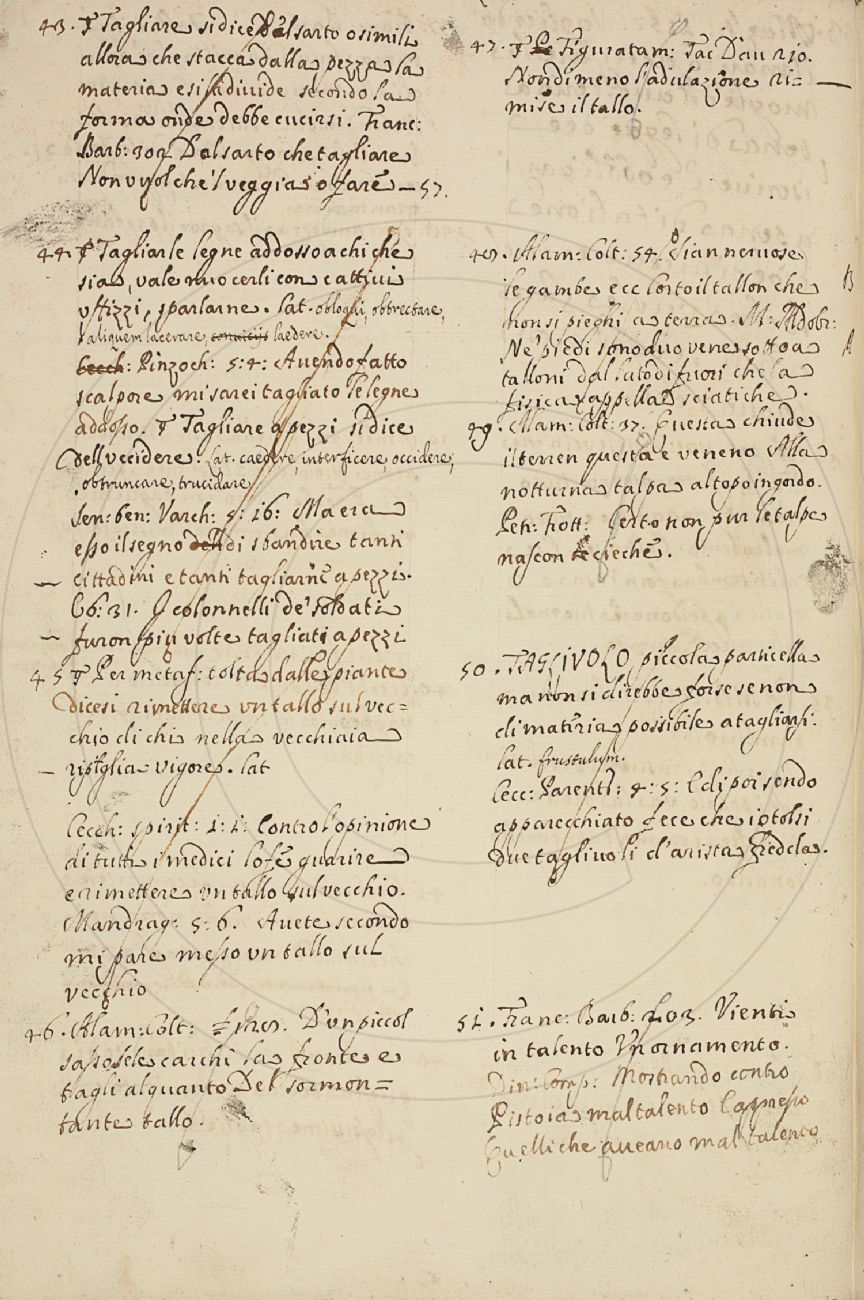 43. ⸸ Tagliare si dice del sarto o simili
allora che stacca dalla pezza la
materia e si divide secondo la
forma onde debbe cucirsi. Franc:
Barb: 302 Dal sarto che tagliare
Non vuol che'l veggia so fare — 57.
44. ⸸ Tagliar le legne addosso a chi che
sia, vale nuocerli con cattivi
uffizzi, sparlarne. Lat. obloqui, obtrectare,
aliquem lacerare, convitijs laedere.
Cecch: Pinzoch: 5:4: Avendo fatto
scalpore mi sarei tagliato le legne
addosso. ⸸ Tagliare a pezzi si dice
Dell'uccidere. Lat. caedere, interficere, occidere,
obtruncare, trucidare
Sen: ben: Varch: 5: 16: Ma era
esso il segno dell di sbandire tanti
— cittadini e tanti tagliarne a pezzi.
C6: 31. I colonnelli de' soldati
— furon più volte tagliati a pezzi
45 ⸸ Per metaf: tolta dalle piante
dicesi rimettere un tallo sul vec=
chio di chi nella vecchiaia
— ripiglia vigore. lat
Cecch: spirit: 1: 1: Contro l'opinione
di tutti i medici lo fe guarire
e rimettere un tallo sul vecchio.
Mandrag: 5: 6. Avete secondo
mi pare messo un tallo sul
vecchio
46. Alam: Colt: D'un piccol
sasso sele carchi la fronte e
tagli alquanto Del sormon=
tante tallo.
47. ⸸ Figuratam: Tac Dav
Nondimeno l'adulazione ri= —
mise il tallo.
48. Alam: Colt: 54. Sian nervose
le gambe ecc Corto il tallon che
non si pieghi a terra. M: Aldobr: B
Ne' piedi sono duo vene sotto a A
talloni dal lato di fuori che la
fisica appella sciatiche.
49. Alam: Colt: 37. Questa chiude
il terren questa è veneno Alla
notturna talpa al topo ingordo.
Petr: Frott: Certo non pur le talpe
nascon cieche.
50. TAGLIVOLO piccola particella
ma non si direbbe forse se non
di materia possibile a tagliarsi.
lat. frustulum.
Cecc: Parenti: 4: 5: E dipoi sendo
apparecchiato fece che io tolsi
due tagliuoli d'arista fredda.
51. Franc: Barb: 203. Vienti
in talento Un ornamento.
Din: Comp: Mostrando contro
Pistoia mal talento
Quelli che aveano mal talento